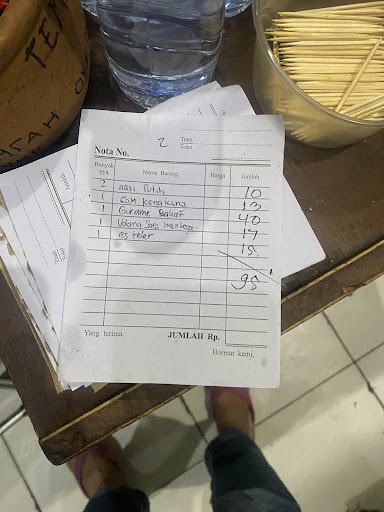 2
Tuan
Toko
Nota No.
Banyak nya Nama Barang Harga Jumlah
2 nasi Putih 10
1 Cah Kangkung 13
1 Gurame Bakar 40
1 17
1 es teler 15
95
Yang terima, JUMLAH Rp.
Hormat kami,